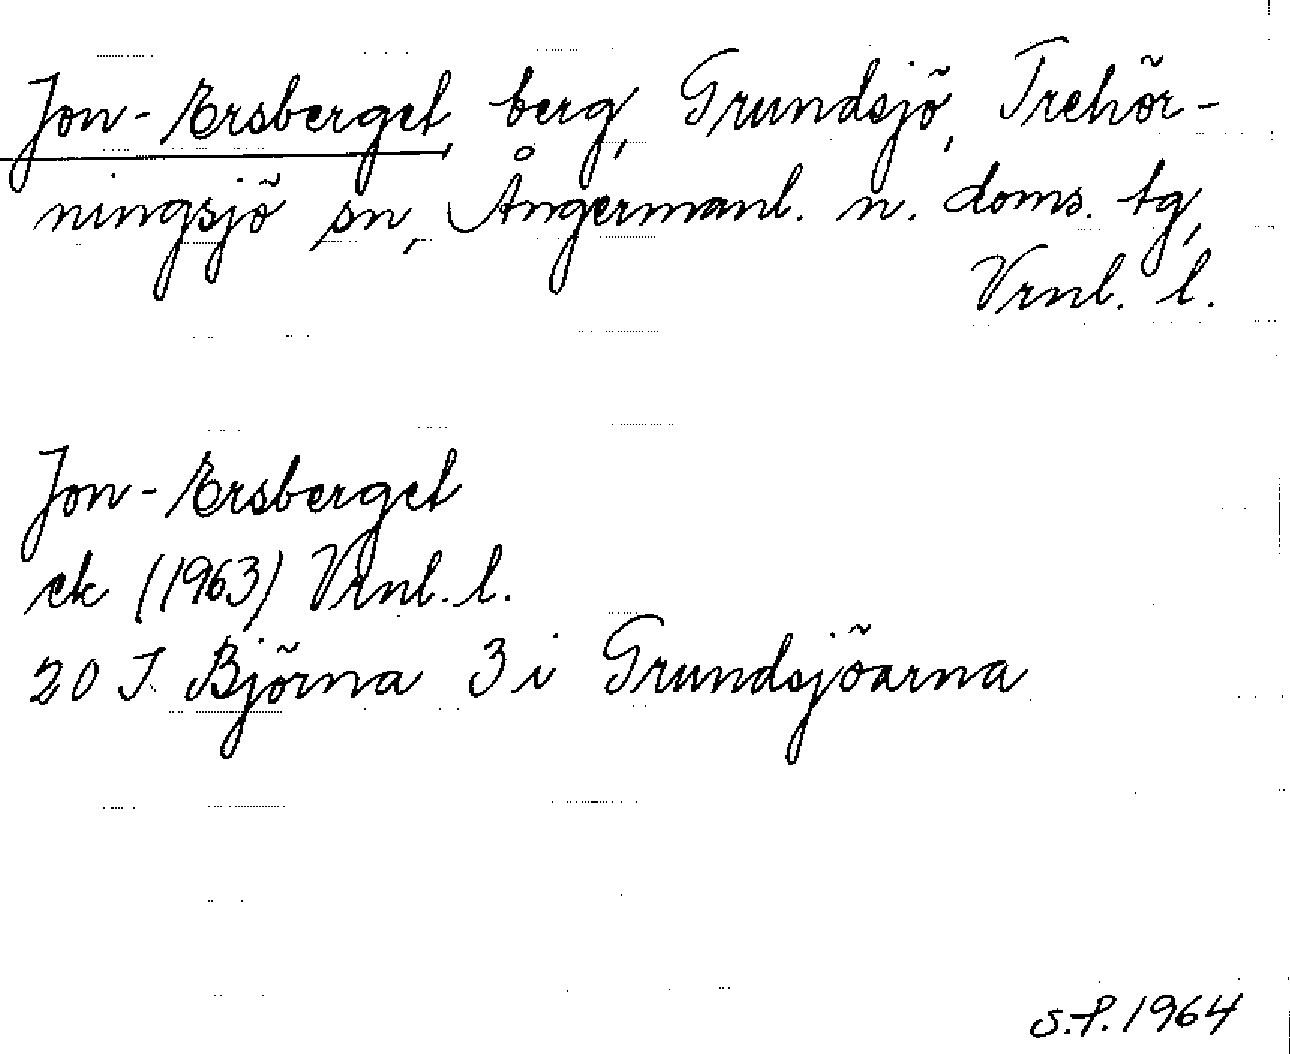 Jon-Ersberget, berg, Grundsjö, Trehör-
ningsjö sn, Ångermanl. n. doms. tg,
Vrnl. l.
Jon-Ersberget
ek (1963) Vrnl. l.
20 J Björna 3 i Grundsjöarna
S.P. 1964